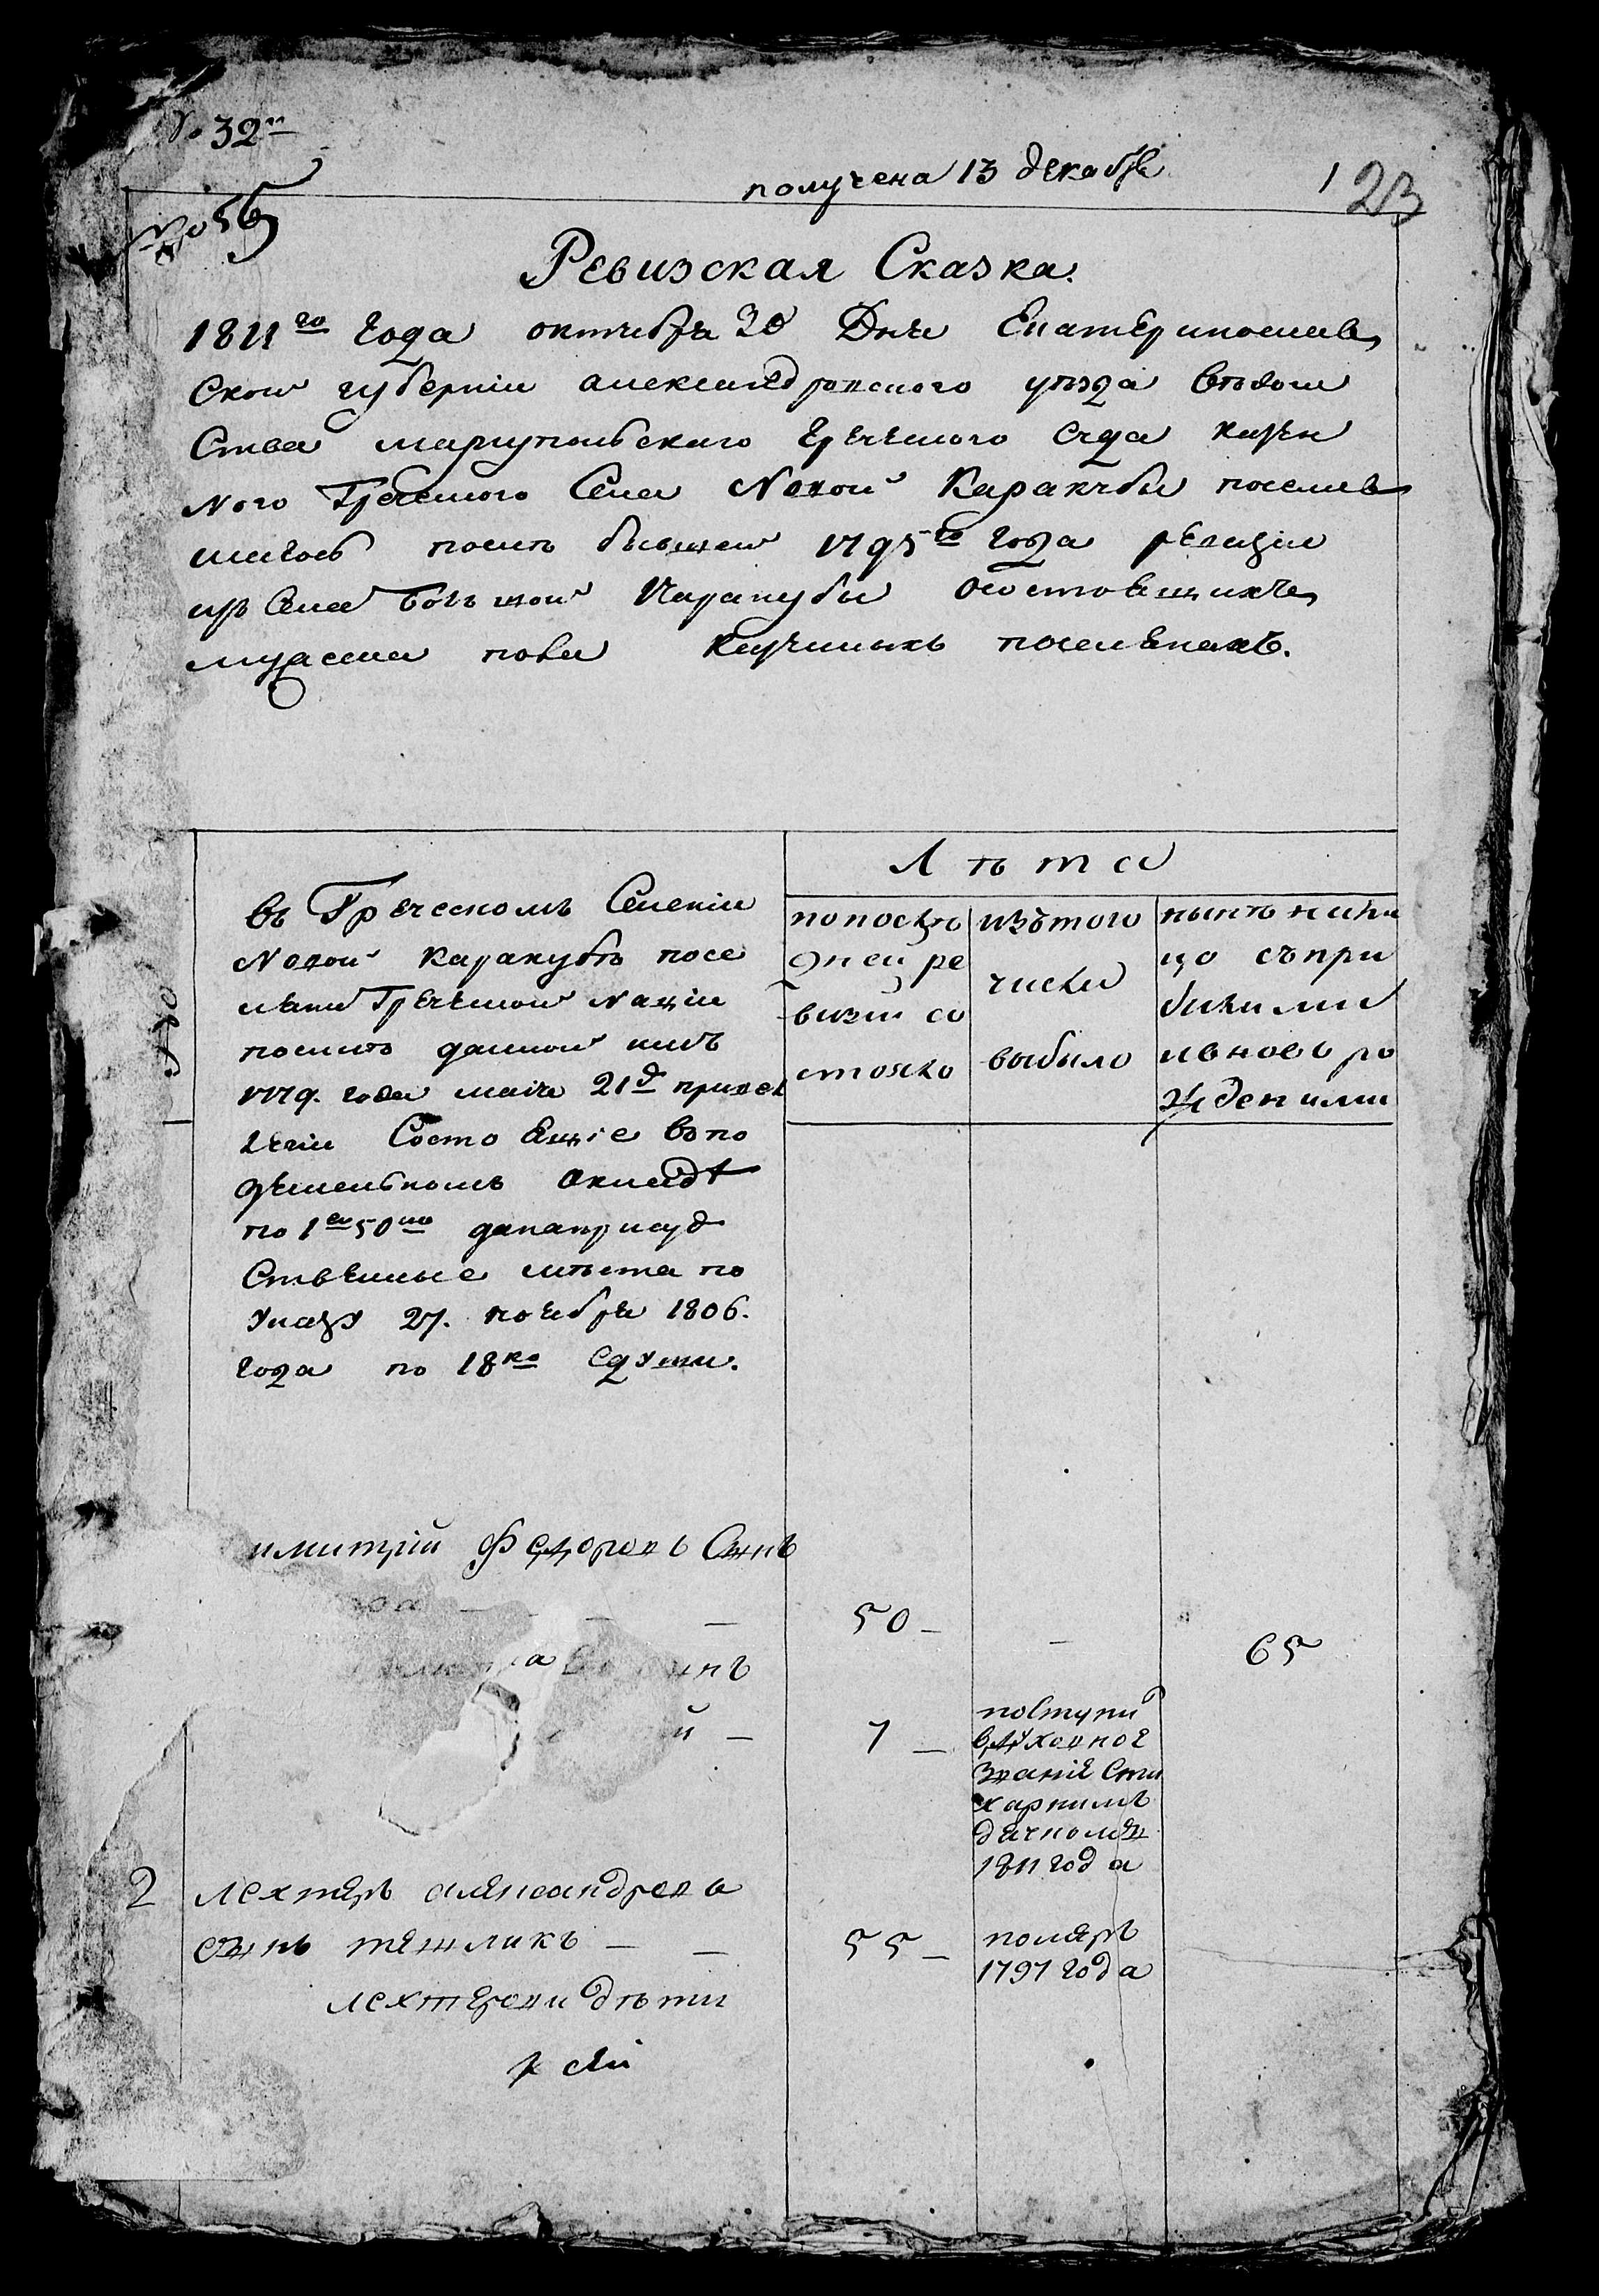 № 32й
получена 13 декабр
123
№ 56
Ревизская Сказка.
1811го года октября 30 Дня Екатеринослав
Скои губерніи александровского уезда Ведом
Ства мариупольскаго греческого Суда казен
Ного Греческого Села Новои Каракубы поселив
шигось после бывшеи 1795го года ревизіи
изъ Села Большои Каракубы Осостоящихъ
мужеска пола казенныхъ поселенахъ.
Лета
№
въ Греческомъ Селеніи
Новои Каракубѣ посе
ляни Греческои Націи
посилѣ даннои имъ
1779. года маія 21д привел
легіи Состоящіе впо
земельномъ окладѣ
по 1ей 50ти данапрису д
Ственные места по
указу 27. ноября 1806.
года по 18ко Сдуши.
по послѣ
дней ре
визіи со
стояло
изътого
числа
выбыло
нынѣ нали
цо съпри
были ми
ивновь ро
жден ими
имитрій Федоровъ Сынъ
50
65
й
7
поступи
вдуховное
званіе Сти
харнимъ
дячкомъ
1811 года
2 лехтеръ александровъ
сынъ тешликъ
55
померъ
1797 года
лехтеровы дѣти